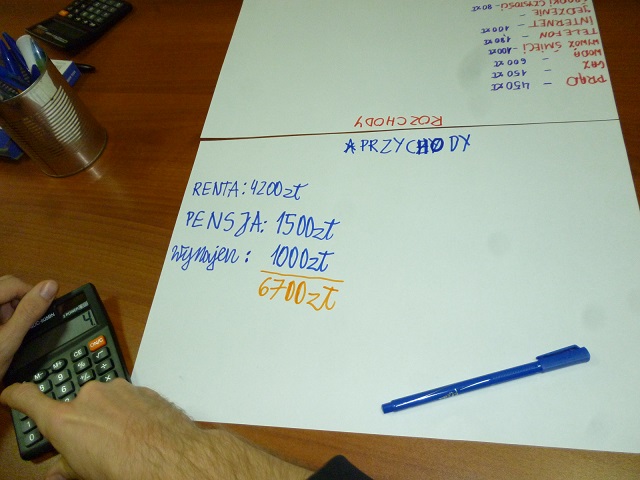 APRZYCHODY
RENTA: 4200zł
PENSJA: 1500zł
wynajem: 1000zł
6700zł
ROZCHODY
PRĄD - 450zł
GAZ - 150zł
WODA - 600zł
WYWÓZ ŚMIECI - 100zł
TELEFON - 190zł
INTERNET - 100zł
JEDZENIE -
ŚRODKI CZYSTOŚCI - 80zł